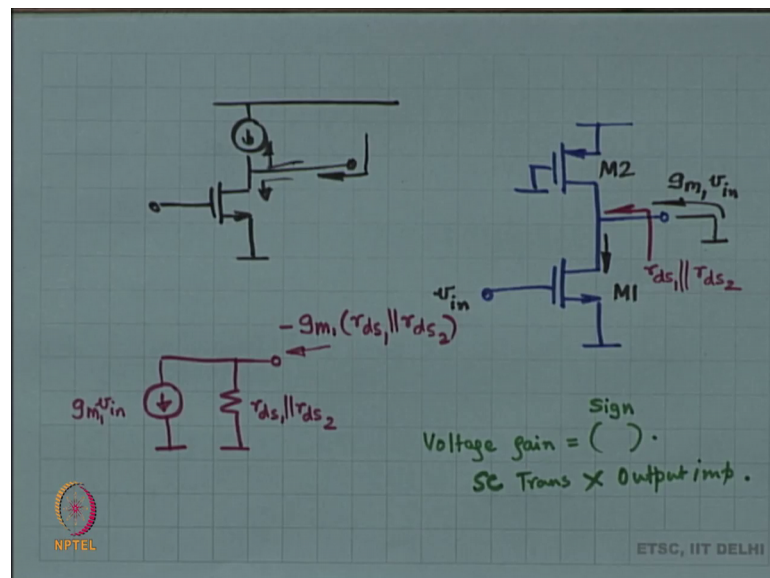 M2
g_m1 v_in
r_ds1 || r_ds2
v_in
M1
-g_m1 (r_ds1 || r_ds2)
g_m1 v_in
r_ds1 || r_ds2
Sign
Voltage gain = ( ) .
SC Trans X Output imp.
NPTEL
ETSC, IIT DELHI